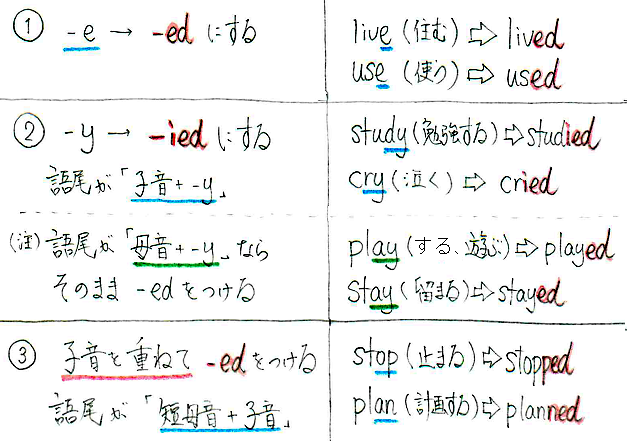 ① -e → -ed にする
live (住む) ⇨ lived
use (使う) ⇨ used
② -y → -ied にする
語尾が「子音+-y」
study (勉強する) ⇨ studied
cry (泣く) ⇨ cried
(注) 語尾が「母音+-y」なら
そのまま -edをつける
play (する、遊ぶ) ⇨ played
stay (留まる) ⇨ stayed
③ 子音を重ねて -edをつける
語尾が「短母音+子音」
stop (止まる) ⇨ stopped
plan (計画する) ⇨ planned